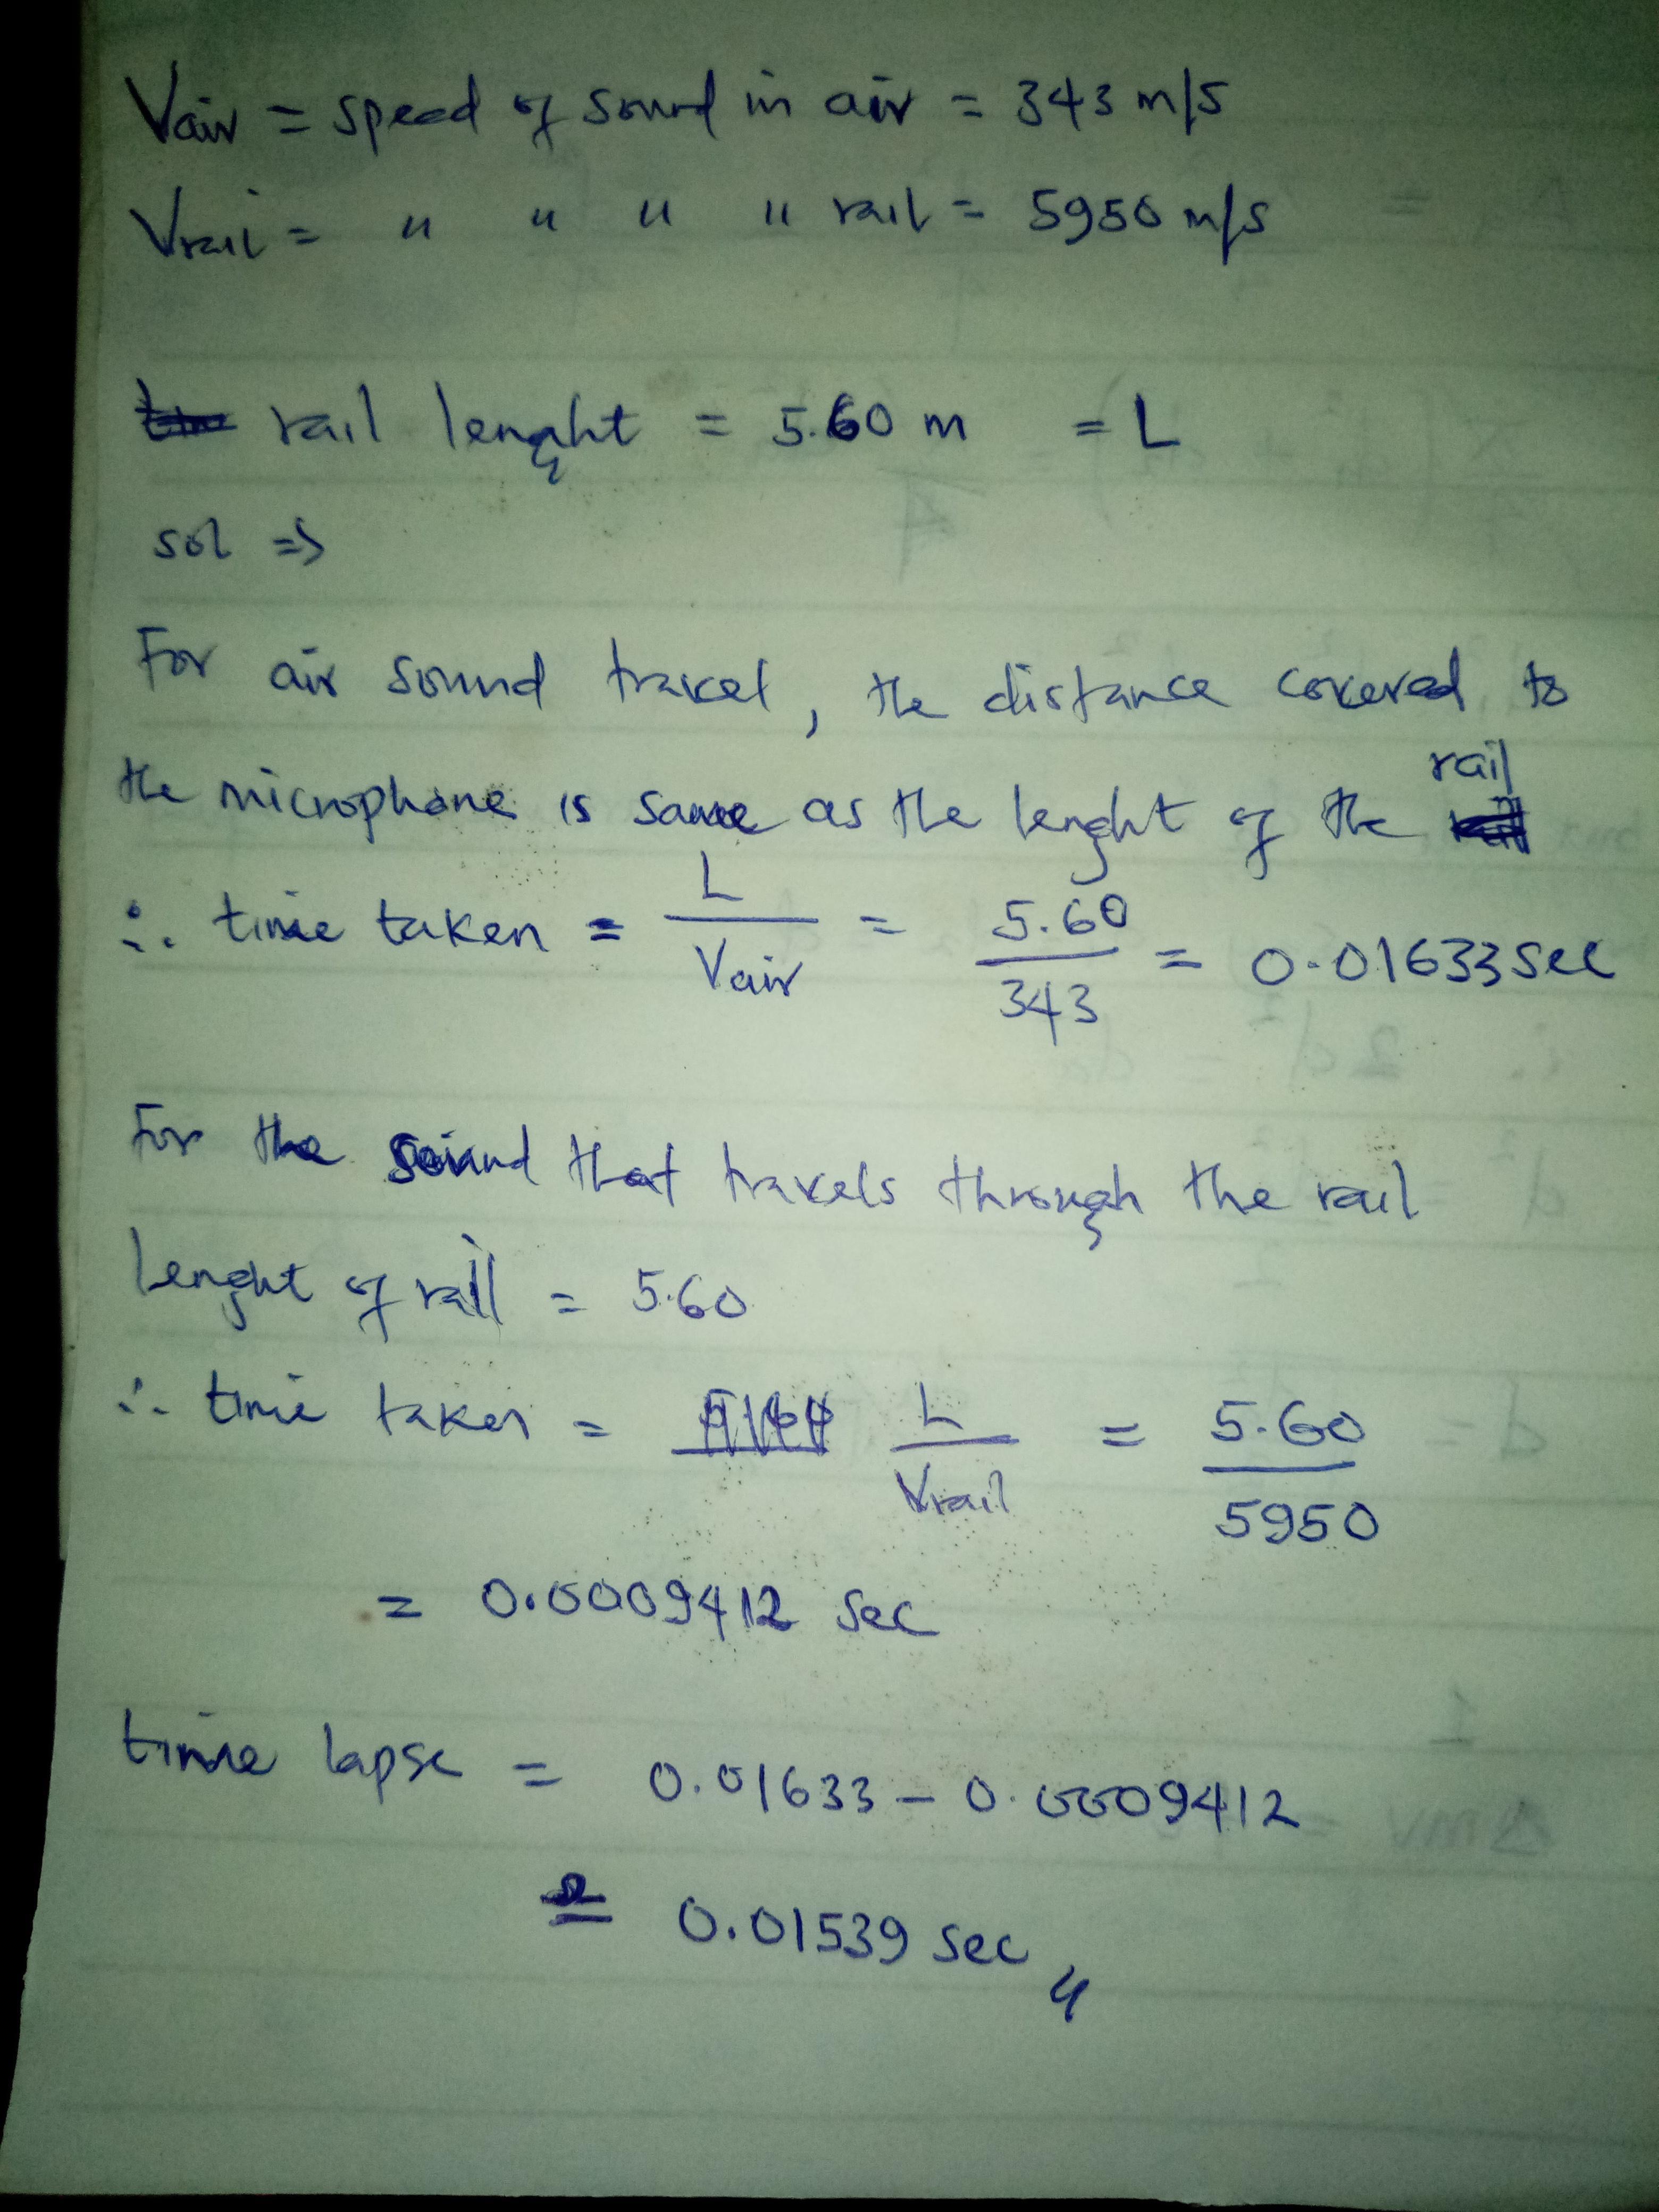 Vair = speed of sound in air = 343 m/s
Vrail = " " " " rail = 5950 m/s
rail lenght = 5.60 m = L
sol ⇒
For air sound travel, the distance covered to
the microphone is same as the lenght of the rail
∴ time taken = L/Vair = 5.60/343 = 0.01633 sec
For the sound that travels through the rail
lenght of rail = 5.60
∴ time taken = L/Vrail = 5.60/5950
= 0.0009412 sec
time lapse = 0.01633 - 0.0009412
= 0.01539 sec